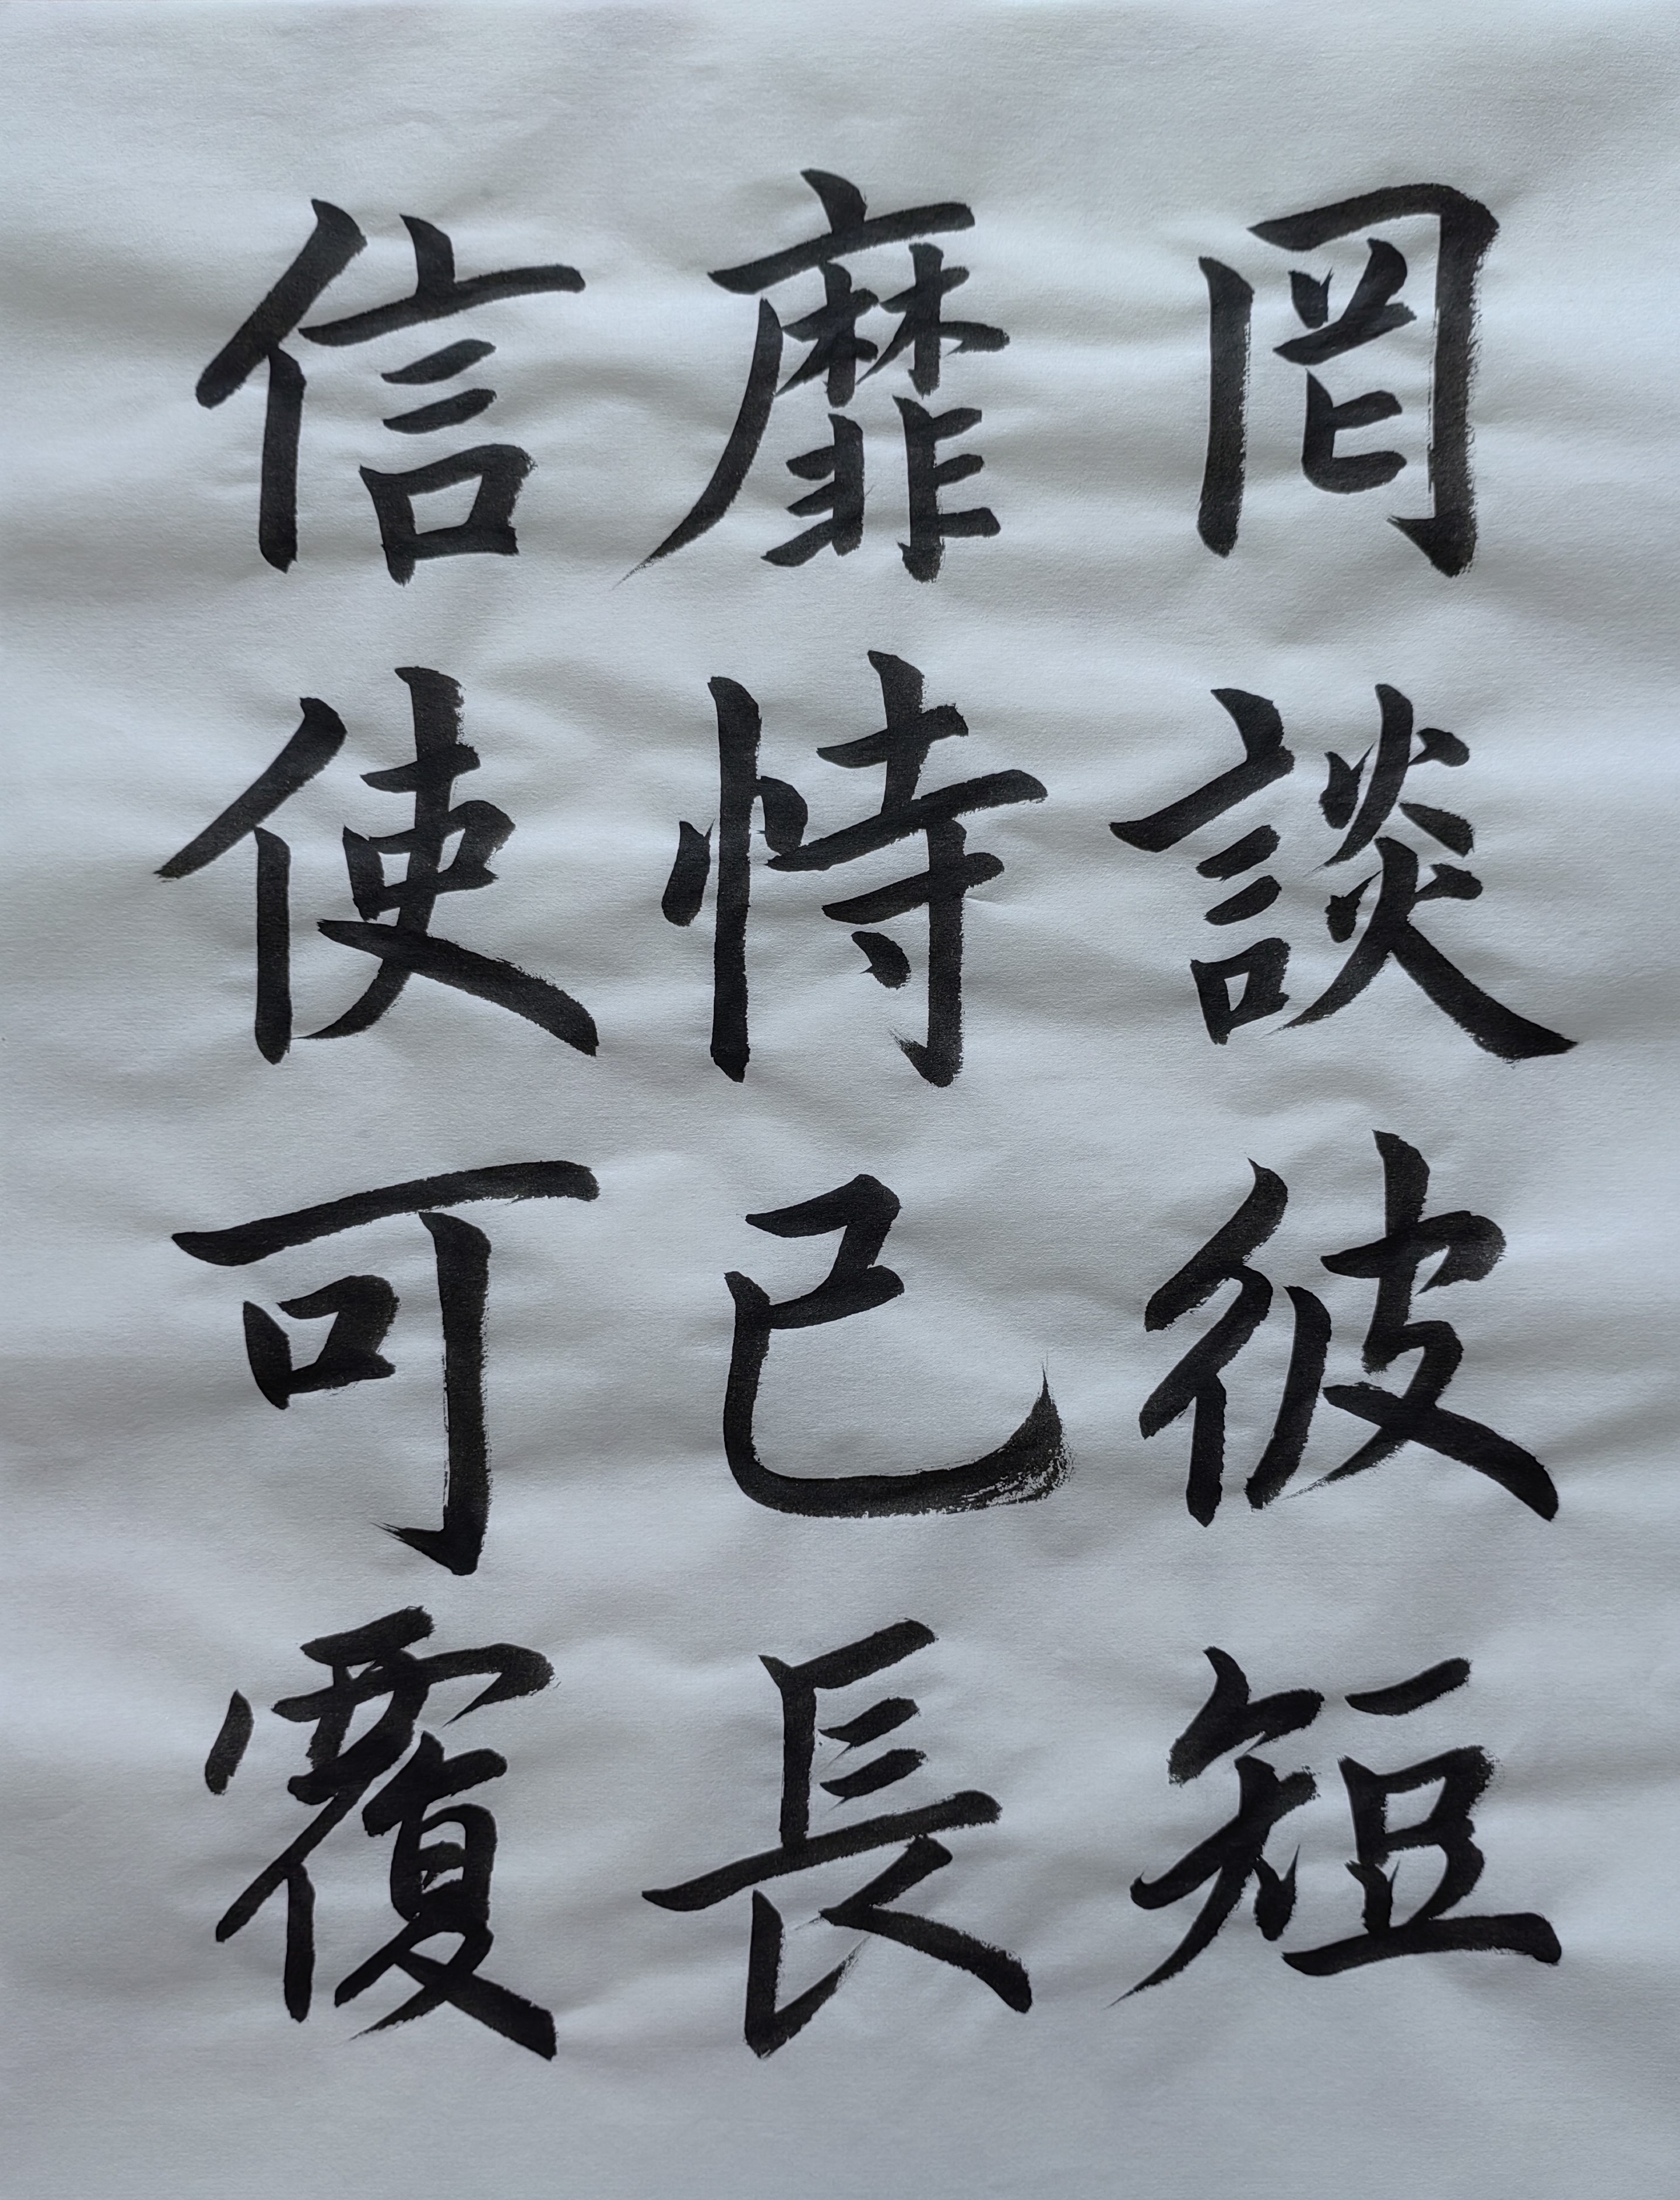 罔談彼短
靡恃己長
信使可覆